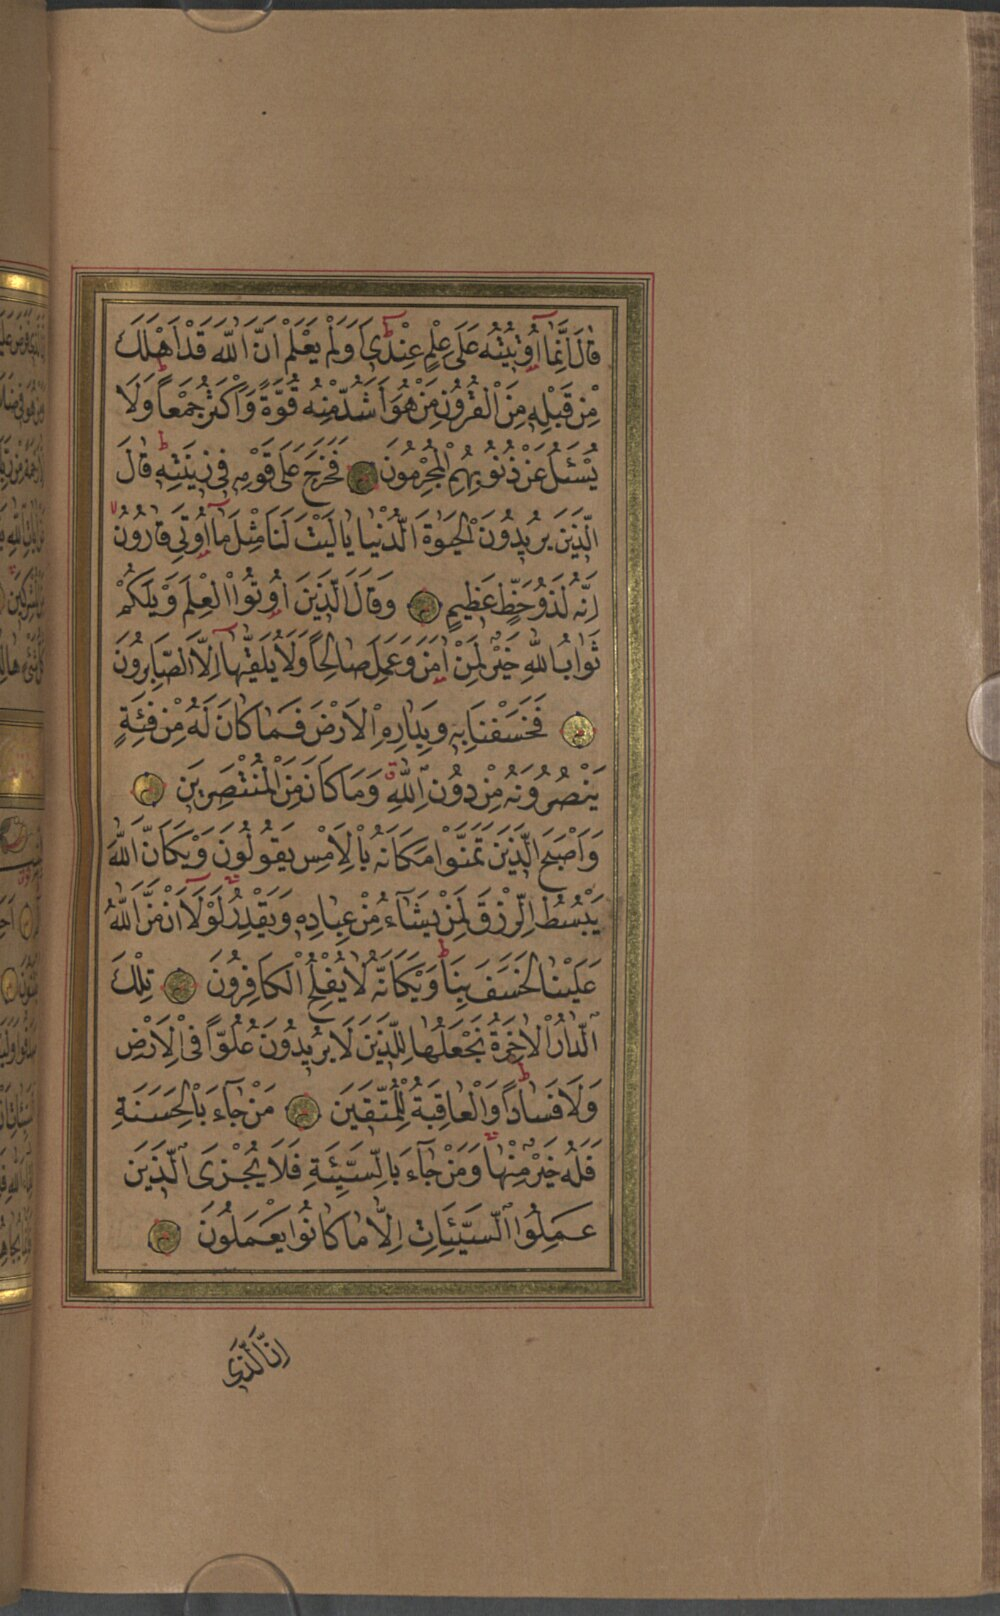 قَالَ اِنَّمَٓا اُو۫ت۪يتُهُ عَلٰى عِلْمٍ عِنْد۪ي اَوَلَمْ يَعْلَمْ اَنَّ اللّٰهَ قَدْ اَهْلَكَ
مِنْ قَبْلِه۪ مِنَ الْقُرُونِ مَنْ هُوَ اَشَدُّ مِنْهُ قُوَّةً وَاَكْثَرُ جَمْعاً وَلَا
يُسْئَلُ عَنْ ذُنُوبِهِمُ الْمُجْرِمُونَ فَخَرَجَ عَلٰى قَوْمِه۪ ف۪ي ز۪ينَتِه۪ قَالَ
الَّذ۪ينَ يُر۪يدُونَ الْحَيٰوةَ الدُّنْيَا يَا لَيْتَ لَنَا مِثْلَ مَٓا اُو۫تِيَ قَارُونُ
اِنَّهُ لَذُو حَظٍّ عَظ۪يمٍ وَقَالَ الَّذ۪ينَ اُو۫تُوا الْعِلْمَ وَيْلَكُمْ
ثَوَابُ اللّٰهِ خَيْرٌ لِمَنْ اٰمَنَ وَعَمِلَ صَالِحاً وَلَا يُلَقّٰيهَٓا اِلَّا الصَّابِرُونَ
فَخَسَفْنَا بِه۪ وَبِدَارِهِ الْاَرْضَ فَمَا كَانَ لَهُ مِنْ فِئَةٍ
يَنْصُرُونَهُ مِنْ دُونِ اللّٰهِ وَمَا كَانَ مِنَ الْمُنْتَصِر۪ينَ
وَاَصْبَحَ الَّذ۪ينَ تَمَنَّوْا مَكَانَهُ بِالْاَمْسِ يَقُولُونَ وَيْكَاَنَّ اللّٰهَ
يَبْسُطُ الرِّزْقَ لِمَنْ يَشَٓاءُ مِنْ عِبَادِه۪ وَيَقْدِرُ لَوْلَٓا اَنْ مَنَّ اللّٰهُ
عَلَيْنَا لَخَسَفَ بِنَا وَيْكَاَنَّهُ لَا يُفْلِحُ الْكَافِرُونَ تِلْكَ
الدَّارُ الْاٰخِرَةُ نَجْعَلُهَا لِلَّذ۪ينَ لَا يُر۪يدُونَ عُلُوًّا فِي الْاَرْضِ
وَلَا فَسَاداً وَالْعَاقِبَةُ لِلْمُتَّق۪ينَ مَنْ جَٓاءَ بِالْحَسَنَةِ
فَلَهُ خَيْرٌ مِنْهَا وَمَنْ جَٓاءَ بِالسَّيِّئَةِ فَلَا يُجْزَى الَّذ۪ينَ
عَمِلُوا السَّيِّئَاتِ اِلَّا مَا كَانُوا يَعْمَلُونَ
اِنَّ الَّذ۪ي